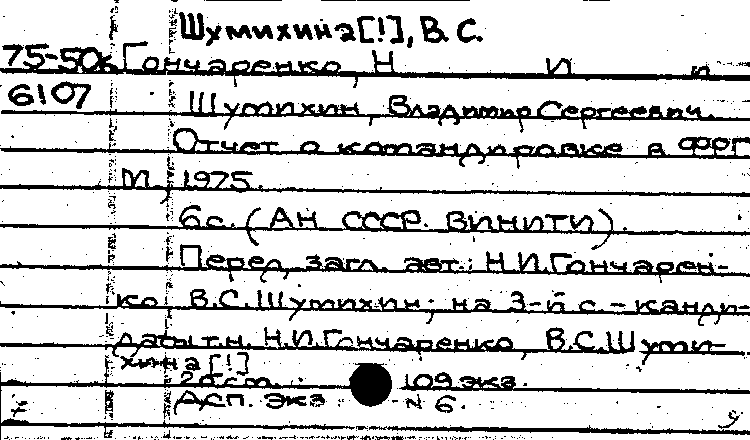 Шумихина[!], В. С.
75-50к Гончаренко, Н И п
6107 Шумихин, Владимир Сергеевич.
Отчет о командировке в ФРГ
М., 1975.
6 с. (АН СССР. ВИНИТИ).
Перед загл. авт.: Н.И.Гончарен-
ко, В.С.Шумихин; на 3-й с. - канди-
даты т.н. Н.И.Гончаренко, В.С.Шуми-
хина[!]
20 см. 109 экз.
Асп. экз. N 6.